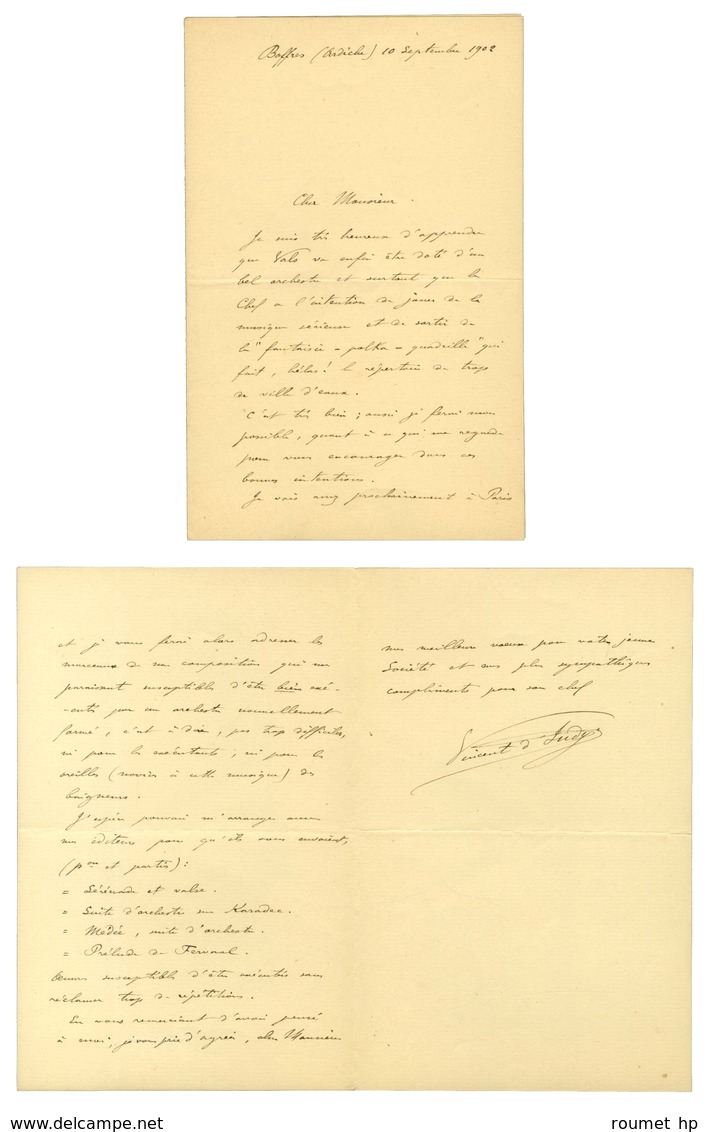 Boffres (Ardèche) 10 Septembre 1902
Cher Monsieur.
Je suis très heureux d'apprendre
que Vals va enfin être doté d'un
bel orchestre et surtout que le
Chef a l'intention de jouer de la
musique sérieuse et de sortir de
la "fantaisie-polka-quadrille" qui
fait, hélas! le répertoire de trop
de ville d'eaux.
C'est très bien; aussi je ferai mon
possible, quant à ce qui me regarde
pour vous encourager dans ces
bonnes intentions.
Je vais assez prochainement à Paris
et je vous ferai alors adresser les
morceaux de ma composition qui me
paraissent susceptibles d'être bien exé-
-cutés par un orchestre nouvellement
formé, c'est à dire, pas trop difficiles,
ni pour les exécutants, ni pour les
oreilles (novices à cette musique) des
baigneurs.
J'espère pouvoir m'arranger avec
mes éditeurs pour qu'ils vous envoient,
(pon et parties):
= Sérénade et valse.
= Suite d'orchestre sur Karadec.
= Médée, suite d'orchestre.
= Prélude de Fervaal.
Œuvres susceptibles d'être exécutées sans
réclamer trop de répétitions.
En vous remerciant d'avoir pensé
à moi, je vous prie d'agréer, cher Monsieur
mes meilleurs vœux pour votre jeune
Société et mes plus sympathiques
compliments pour son chef
Vincent d'Indy
roumet hp